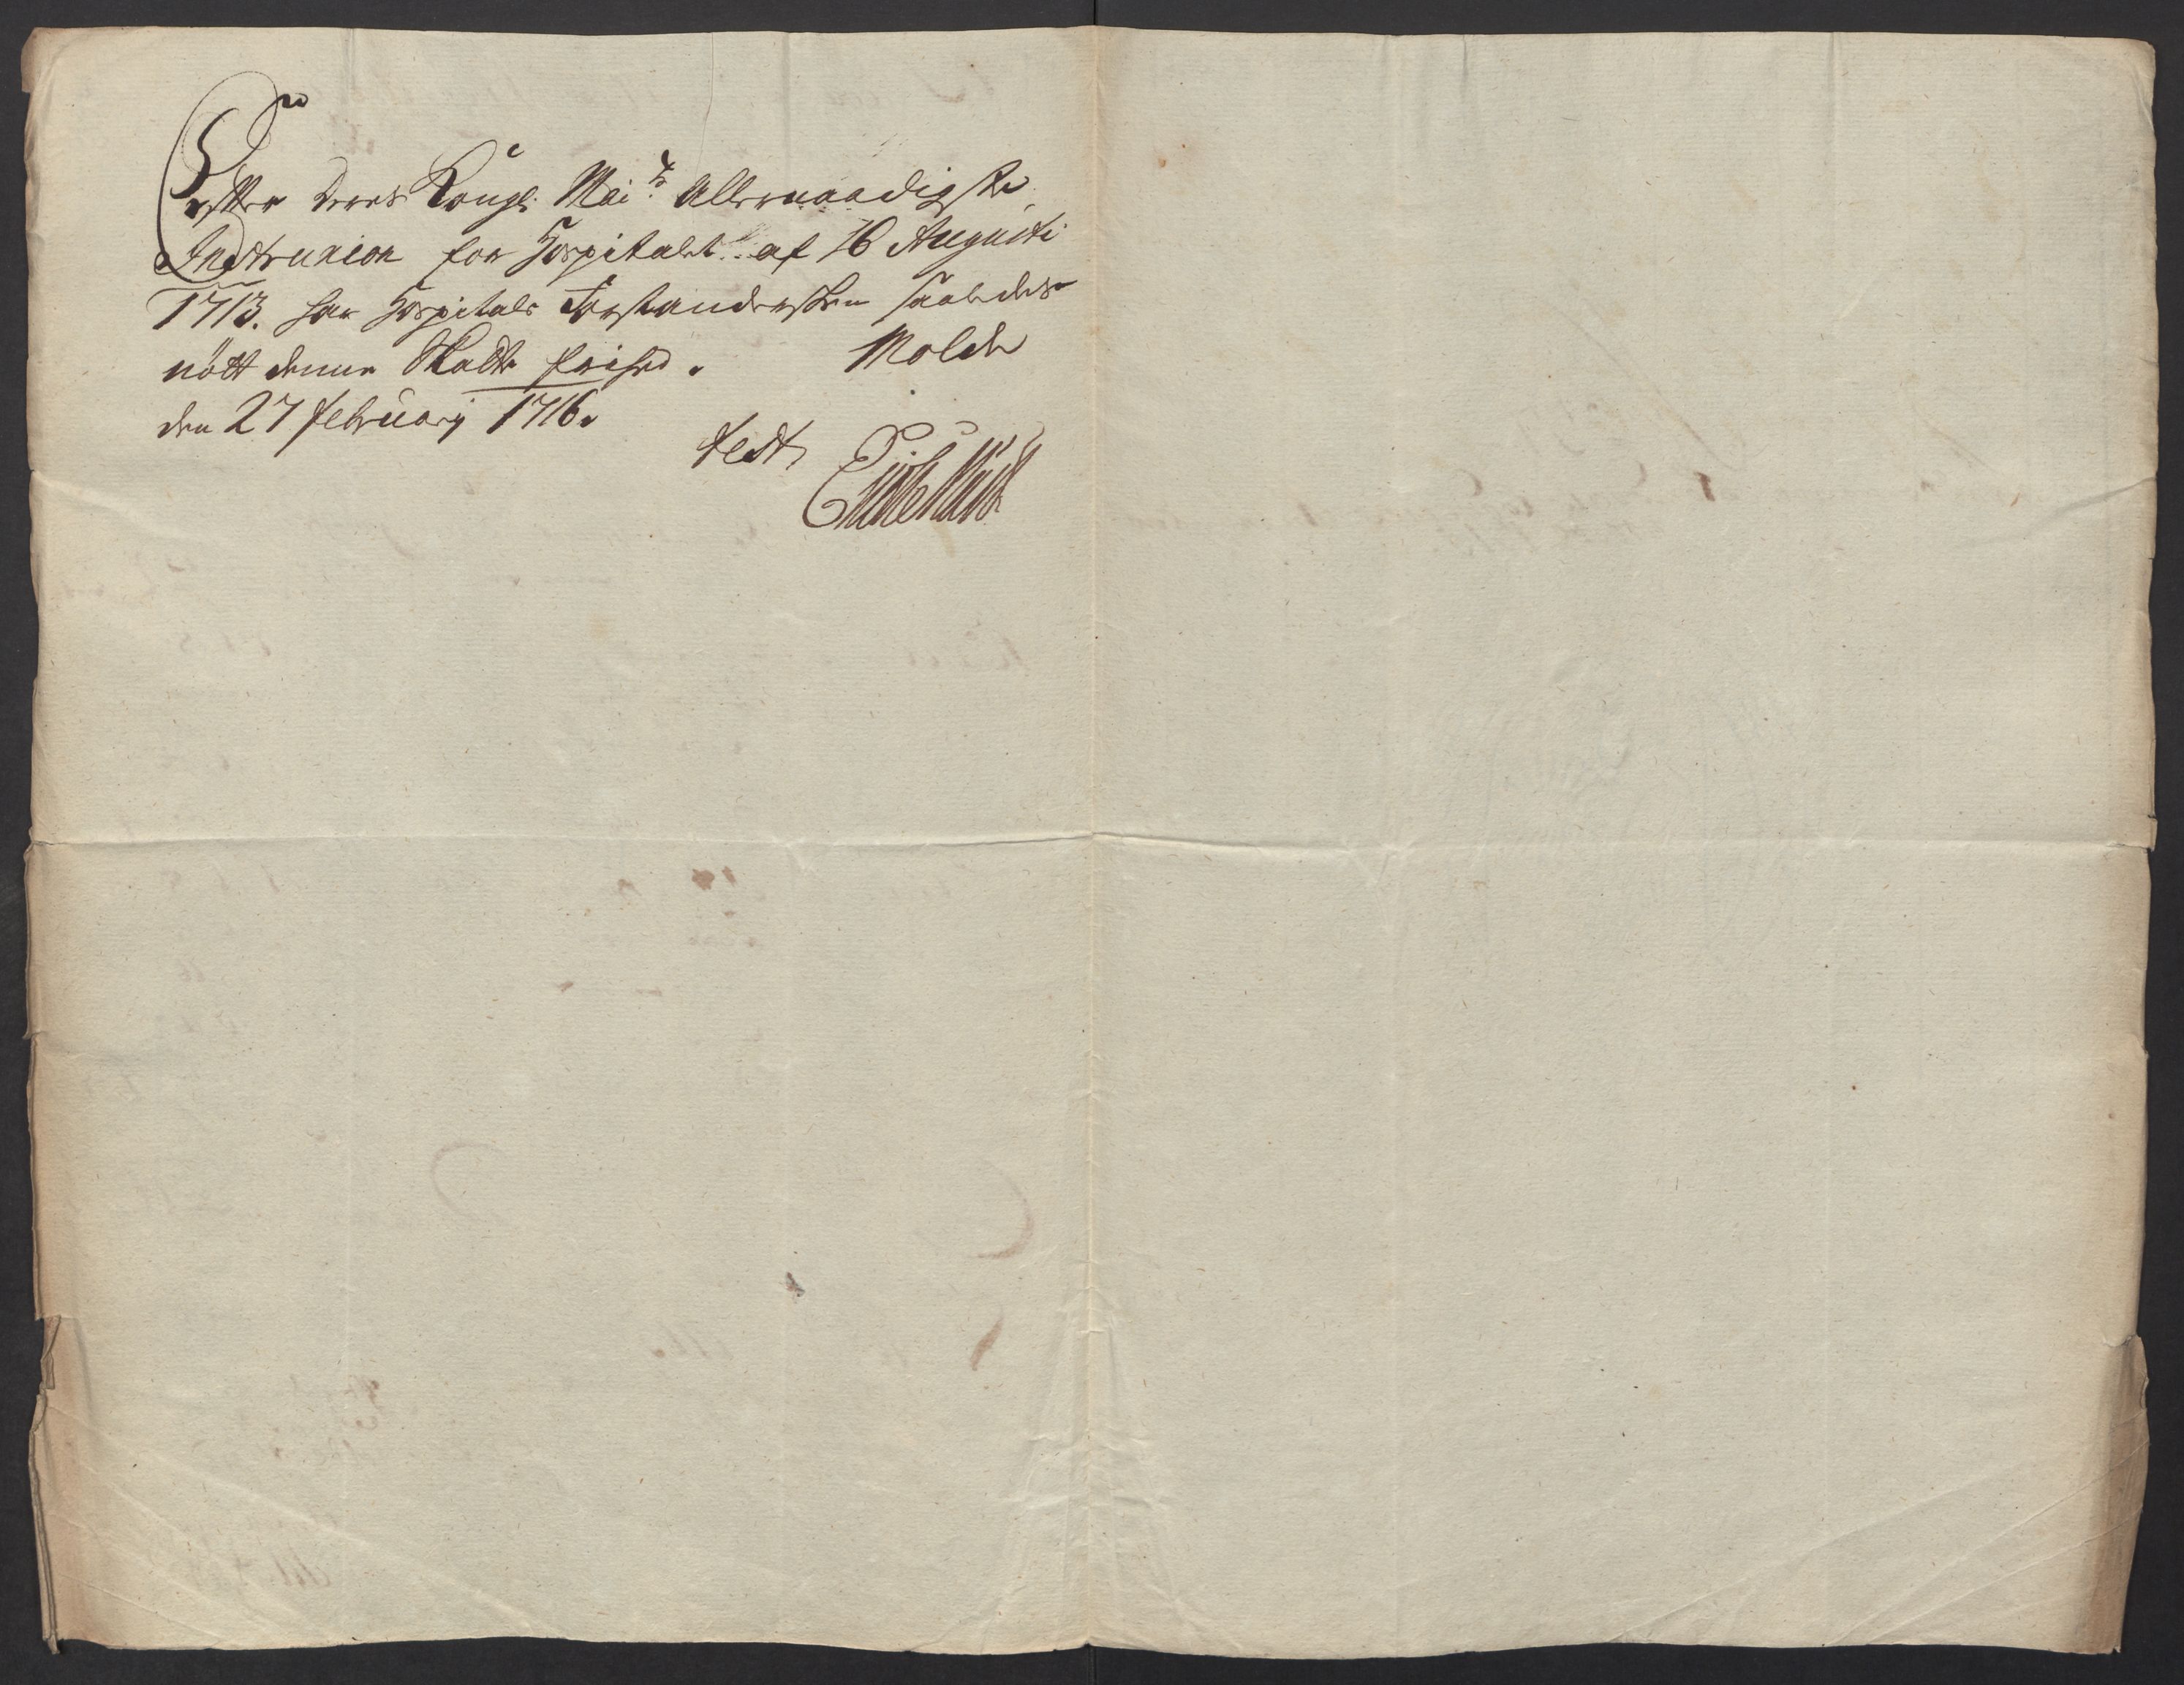 Effter Deres Kongl: Mai:ts Allernaadigste
Instruxion for Hospitalet af 16 Augusti
1713. har Hospitals Forstandersken saaledes
nött denne Skatte frihed. Molde
den 27 February 1716.
test